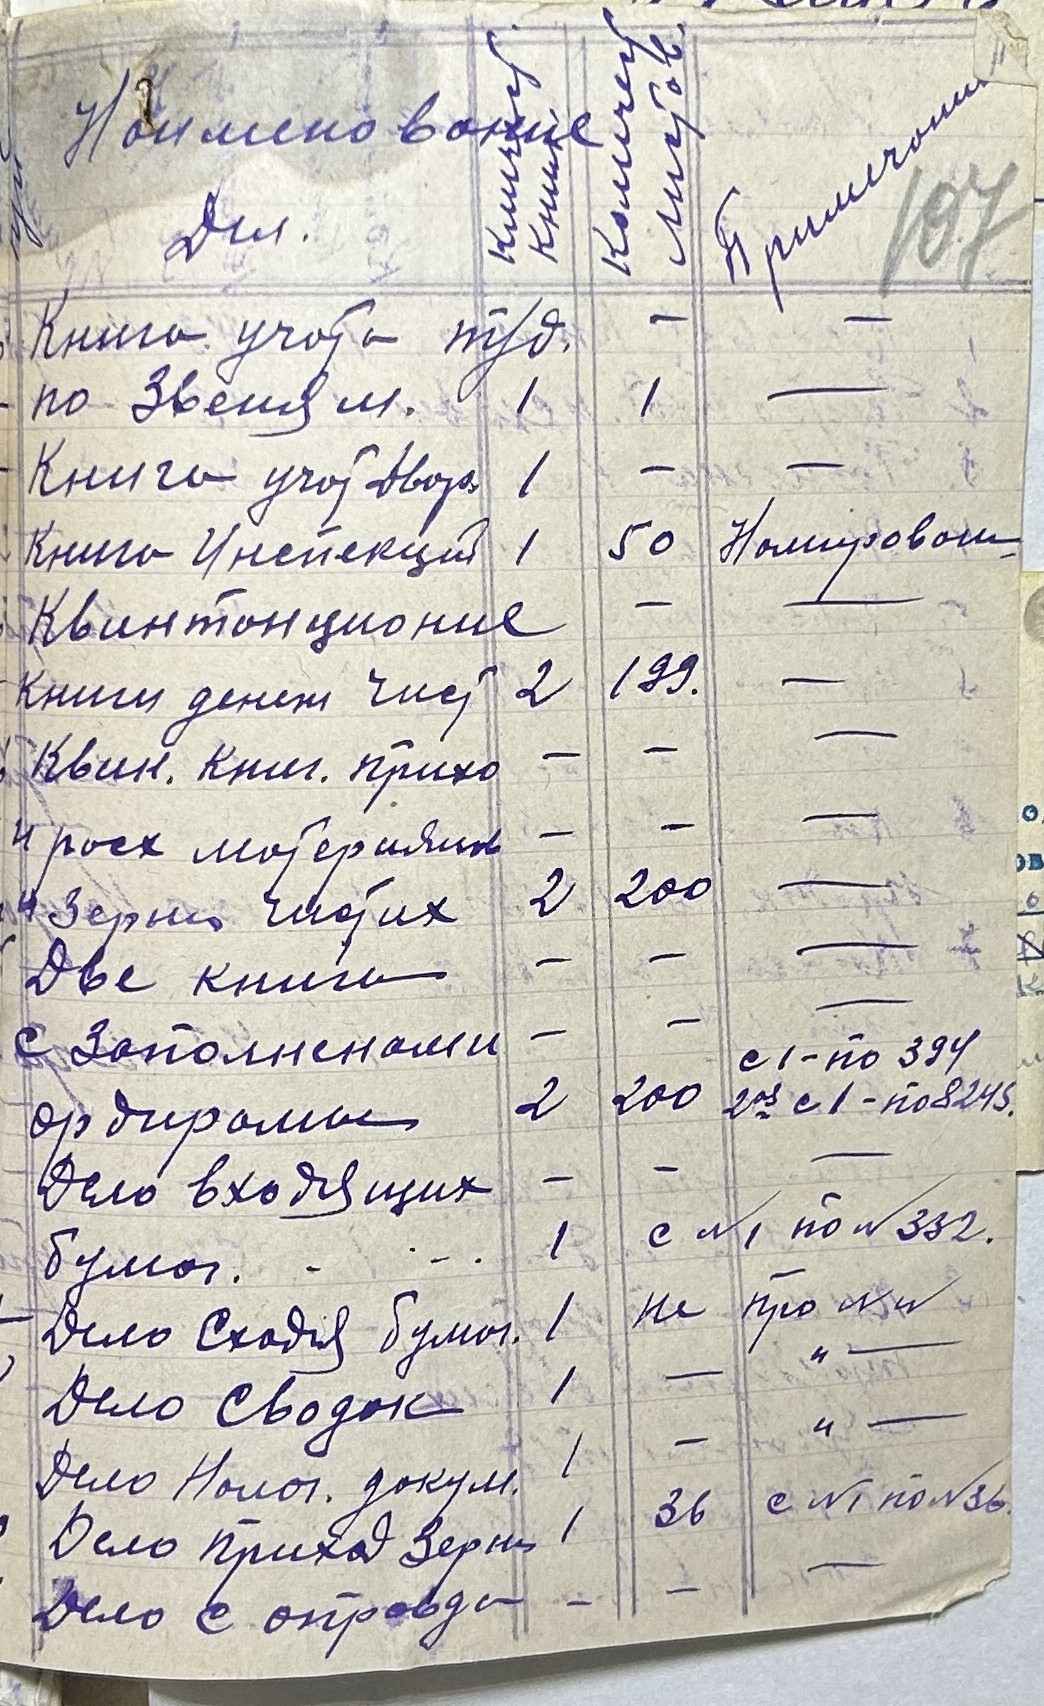 Наименование
Дел.
Количест Книг
Количест Листов.
Примечание
197
Книга учота тр/д.
по Звеням. 1 1 —
Книга учот Двор 1 — —
Книга Инспекций 1 50 Номирован
Квинтонционие — —
Книги денеж Чист 2 199. —
Квин. Книг. прихо — — —
и росх мотериялн — — —
и Зерна Чистих 2 200 —
Две книги — — —
с Заполненами — — —
с 1 - по 394
ордирами 2 200 2ая с 1 - по 8245.
Дело входящих — — —
бумог. - - - . 1 с №1 по №332.
Дело Сходя бумог. 1 не про № №
Дело Сводок 1 — " —
Дело Налог. докум. 1 — " —
Дело приход Зерна 1 36 с №1 по №36.
Дело с оправда - — —